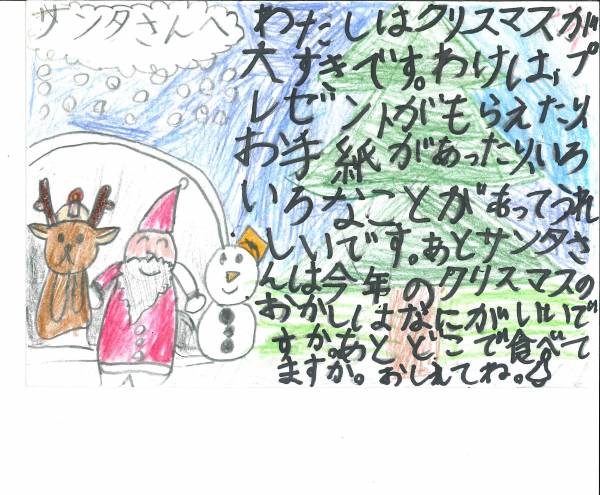 サンタさんへ
わたしはクリスマスが
大すきです。わけは、プ
レゼントがもらえたり、
お手紙があったり、いろ
いろなことがあってうれ
しいです。あとサンタさ
んは今年のクリスマスの
おかしはなにがいいで
すか。あとどこで食べて
ますか。おしえてね。